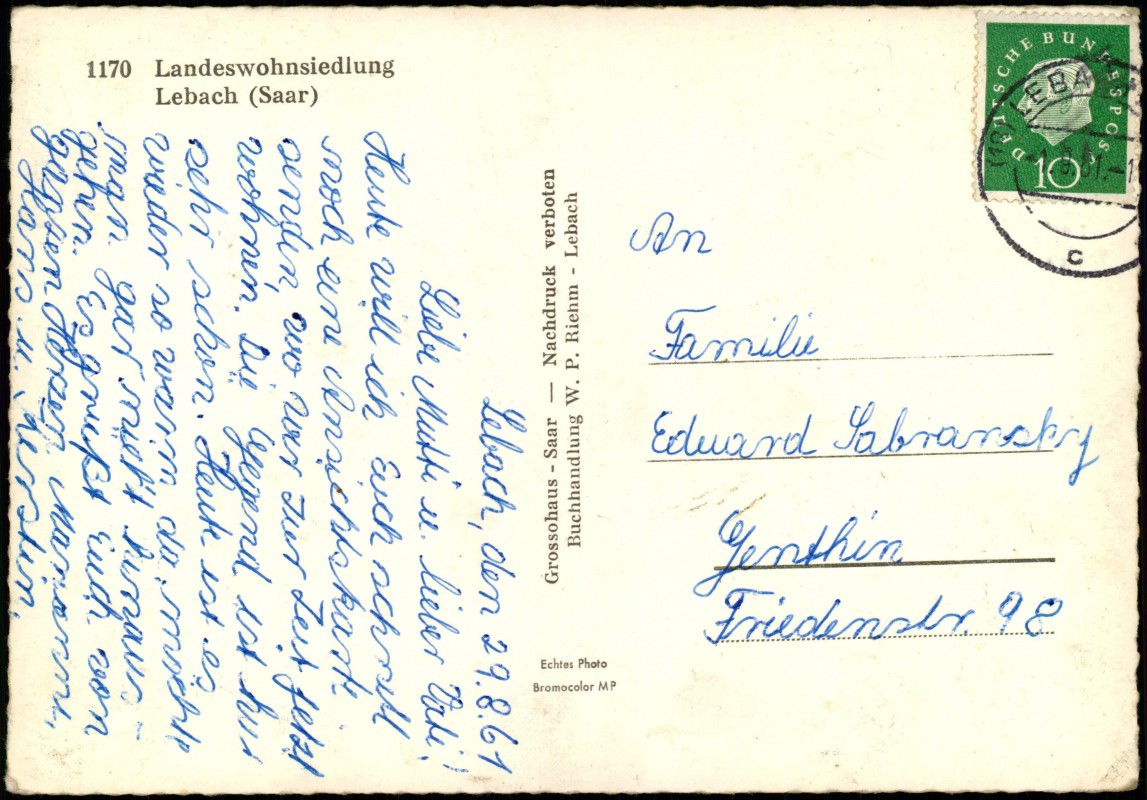 1170 Landeswohnsiedlung
Lebach (Saar)
Lebach, den 29.8.61
Liebe Mutti u. lieber Vati!
Heute will ich Euch schnell
noch eine Ansichtskarte
senden, wo wir zur Zeit jetzt
wohnen. Die Gegend ist hier
sehr schön. Heute ist es
wieder so warm, da möchte
man gar nicht hinaus-
gehen. Es grüßt Euch von
ganzem Herzen
Hans u. Kerstin.
Grossohaus - Saar — Nachdruck verboten
Buchhandlung W. P. Riehm - Lebach
Echtes Photo
Bromocolor MP
DEUTSCHE BUNDESPOST
10
LEBACH
c
An
Familie
Eduard Sabransky
Genthin
Friedenstr. 98